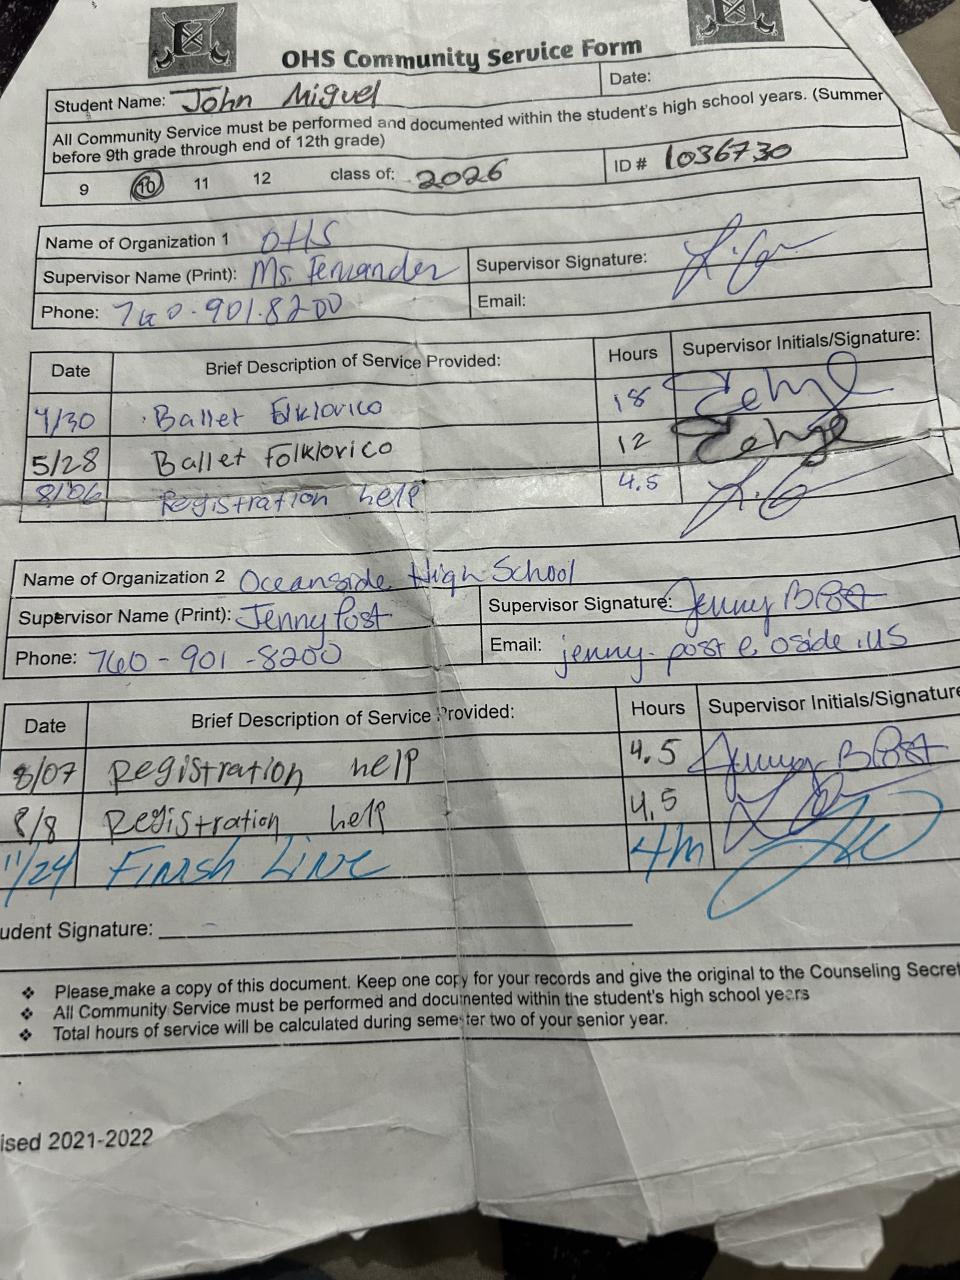 OHS Community Service Form
Student Name: John Miguel Date:
All Community Service must be performed and documented within the student's high school years. (Summer
before 9th grade through end of 12th grade)
9 10 11 12 class of: 2026 ID # 1036730
Name of Organization 1 OHS
Supervisor Name (Print): Ms. Fernandez Supervisor Signature:
Phone: 760-901.8200 Email:
Date Brief Description of Service Provided: Hours Supervisor Initials/Signature:
4/30 Ballet Folklorico 18
5/28 Ballet Folklorico 12
8/06 Registration help 4.5
Name of Organization 2 Oceanside High School
Supervisor Name (Print): Jenny Post Supervisor Signature: Jenny B Post
Phone: 760-901-8200 Email: jenny.post@oside.us
Date Brief Description of Service Provided: Hours Supervisor Initials/Signature
8/07 Registration help 4.5 Jenny B Post
8/8 Registration help 4.5
11/24 Finish Line 4
udent Signature:
❖ Please make a copy of this document. Keep one copy for your records and give the original to the Counseling Secret
❖ All Community Service must be performed and documented within the student's high school years
❖ Total hours of service will be calculated during semester two of your senior year.
ised 2021-2022